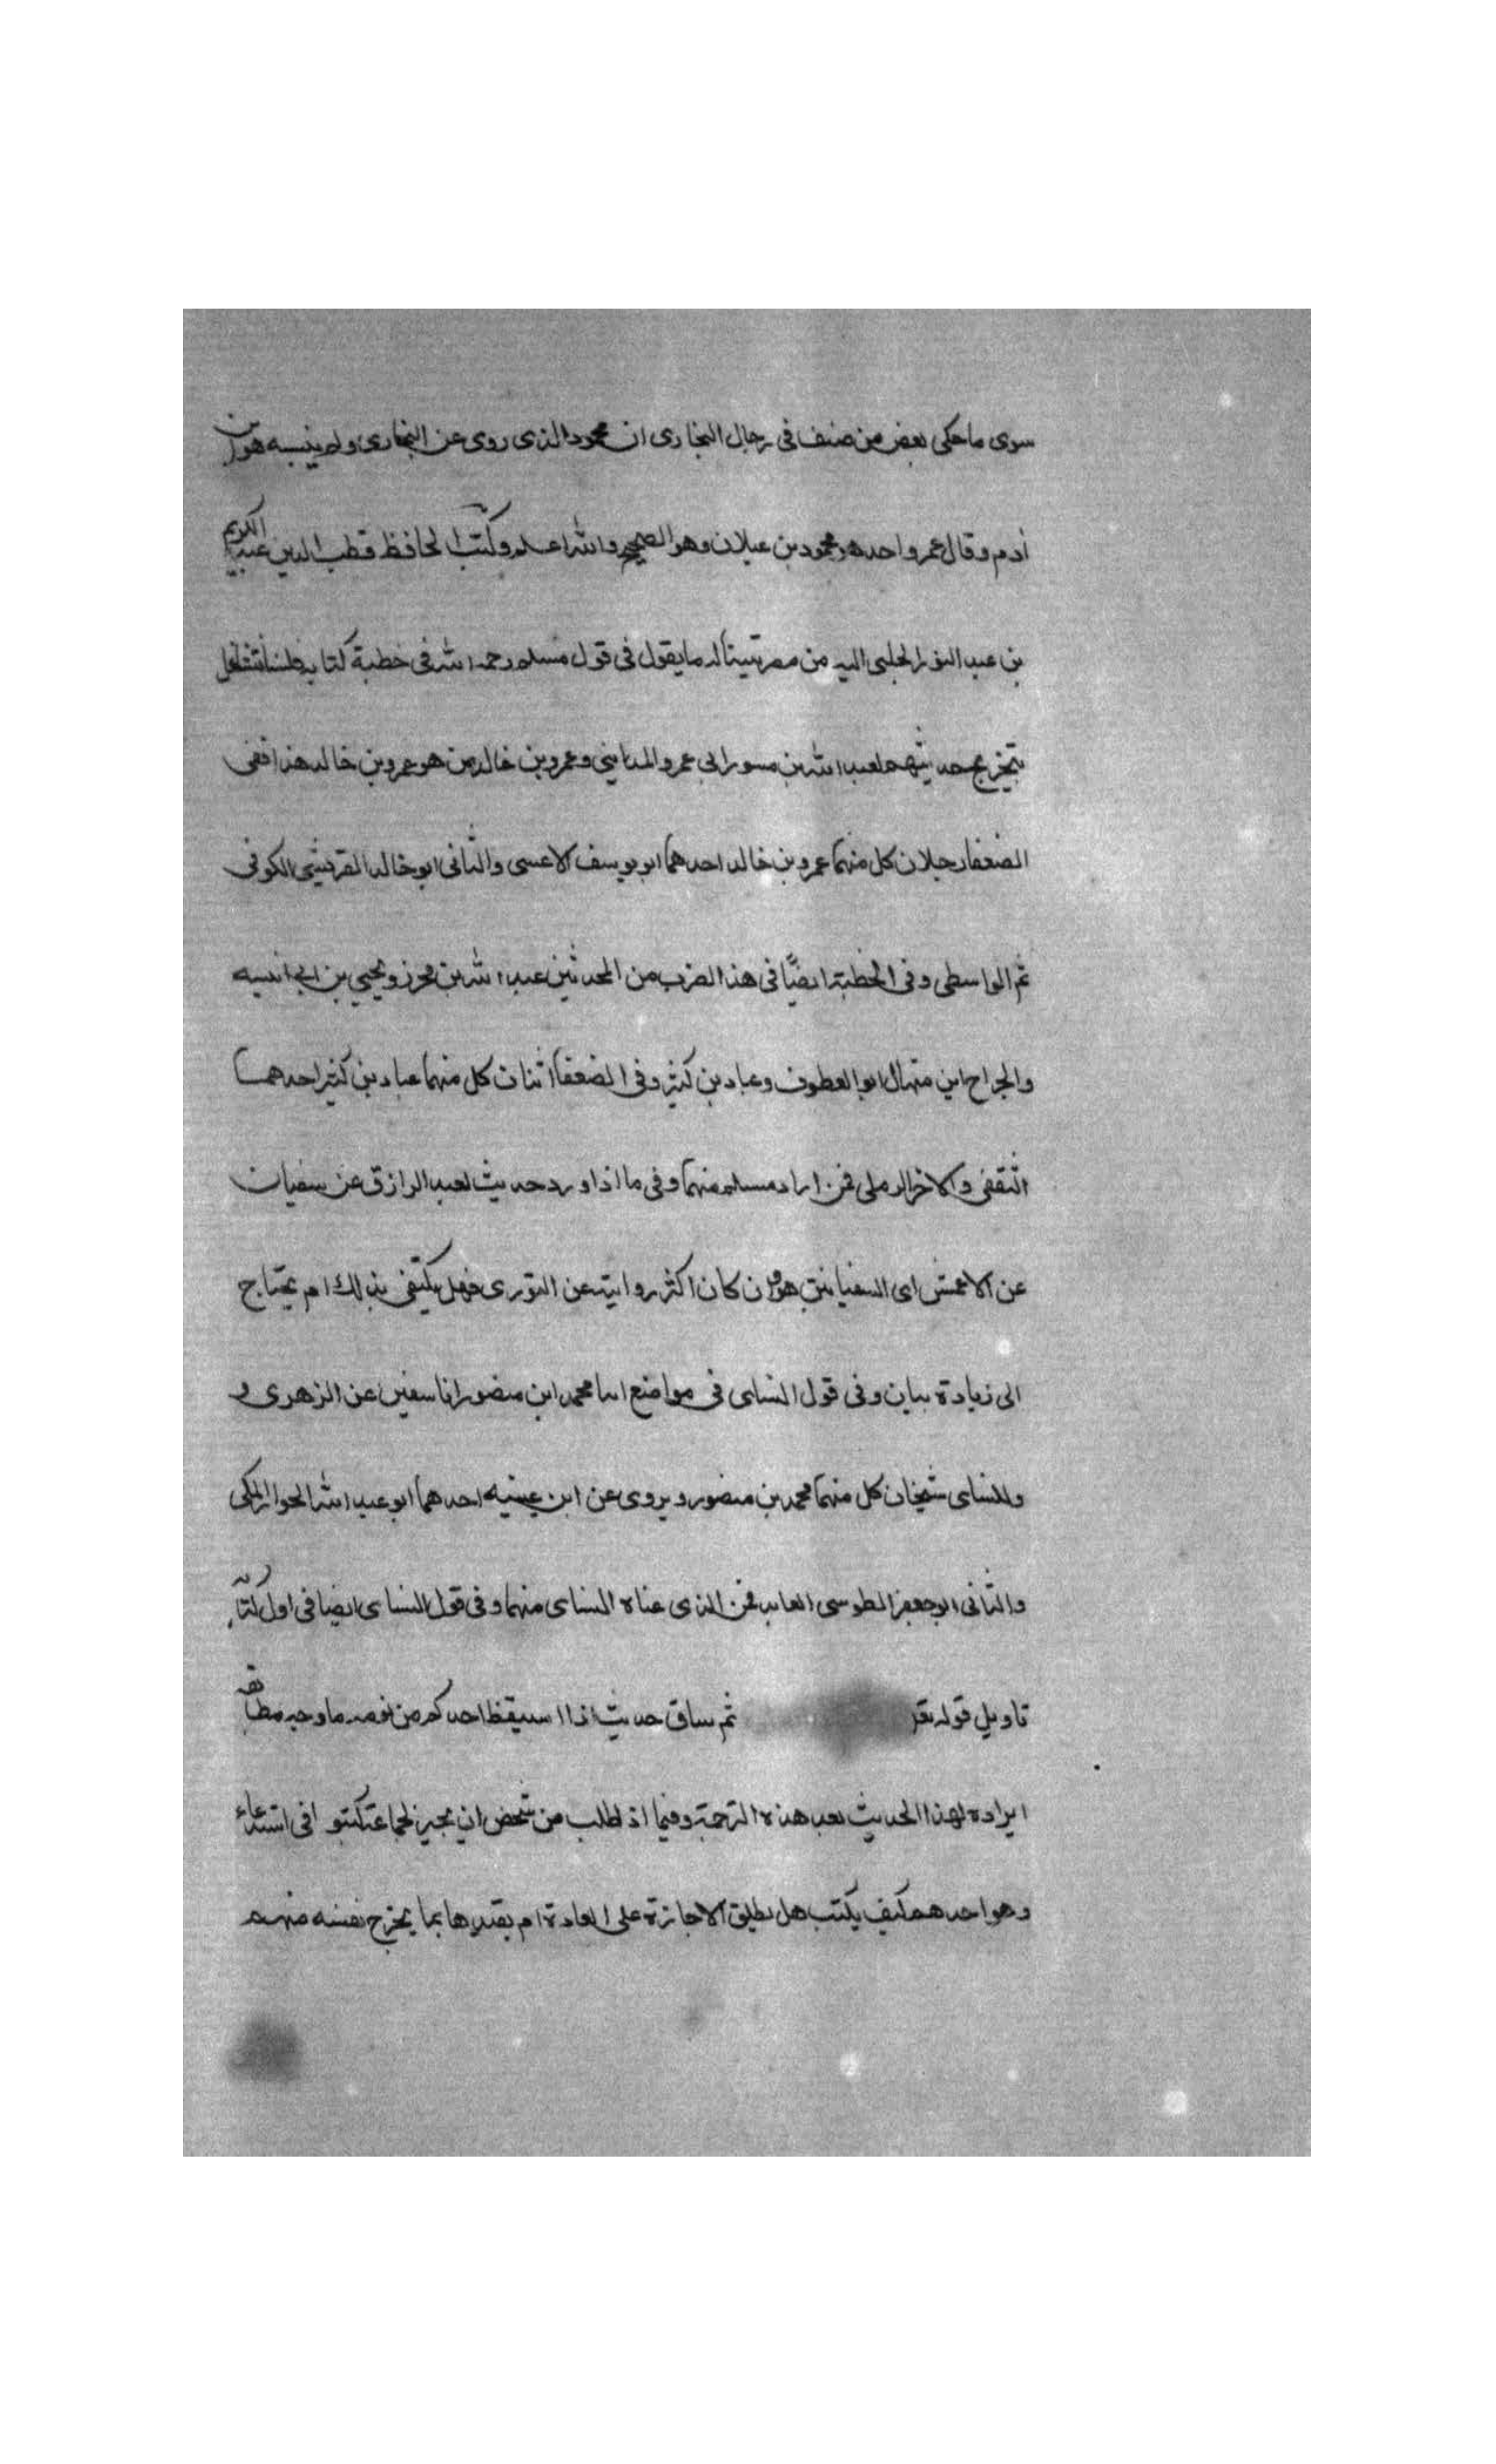 سوى ما حكى بعض من صنف فى رجال البخارى ان محمود الذى روى عن البخارى ولم ينسبه هو ابن
أدم وقال عمر واحد هو محمود بن عيلان وهو الصحيح والله اعلم وكتب الحافظ قطب الدين عبد الكريم
بن عبد النور الحلبى اليه من مصر يسأله ما يقول فى قول مسلم رحمه الله فى خطبة كتابه فلسنا نتشاغل
بتخريج حديثهم لعبد الله بن مسور ابى عمرو المدايني وعمرو بن خالد من هو عمرو بن خالد هذا ففى
الضعفا رجلان كل منهما عمرو بن خالد احدهما ابو يوسف الاعسى والثانى ابو خالد القرشي الكوفى
ثم الواسطى وفى الخطبة ايضًا فى هذا الضرب من المحدثين عبد الله بن محرز ويحيي بن ابى انيسه
والجراح ابن منهال ابو العطوف وعباد بن كثير وفى الضعفا اثنان كل منهما عباد بن كثير احدهما
الثقفى والاخر الرملى فمن اراد مسلم منهما وفى ما اذا ورد حديث لعبد الرازق عن سفيان
عن الاعمش اى السفيانين هو وان كان اكثر روايته عن الثورى فهل يكتفى بذلك ام يحتاج
الى زيادة بيان وفى قول النساى فى مواضع انا محمد ابن منصور انا سفين عن الزهرى و
وللنساى شيخان كل منهما محمد بن منصور ويروى عن ابن عيينه احدهما ابو عبد الله الجواز المكى
والثانى ابو جعفر الطوسى العابد فمن الذى عناه النساى منهما وفى قول النساى ايضا فى اول كتابه
تاويل قوله تعز ثم ساق حديث اذا استيقظ احدكم من نومه ما وجه مطابقه
ايراده لهذا الحديث بعد هذه الترجمة وفيما اذ طلب من شخص ان يجيز لجماعة كتبوا فى استدعاء
وهو احدهم كيف يكتب هل يطلق الاجازة على العادة ام يقيدها بما يخرج نفسه منهم